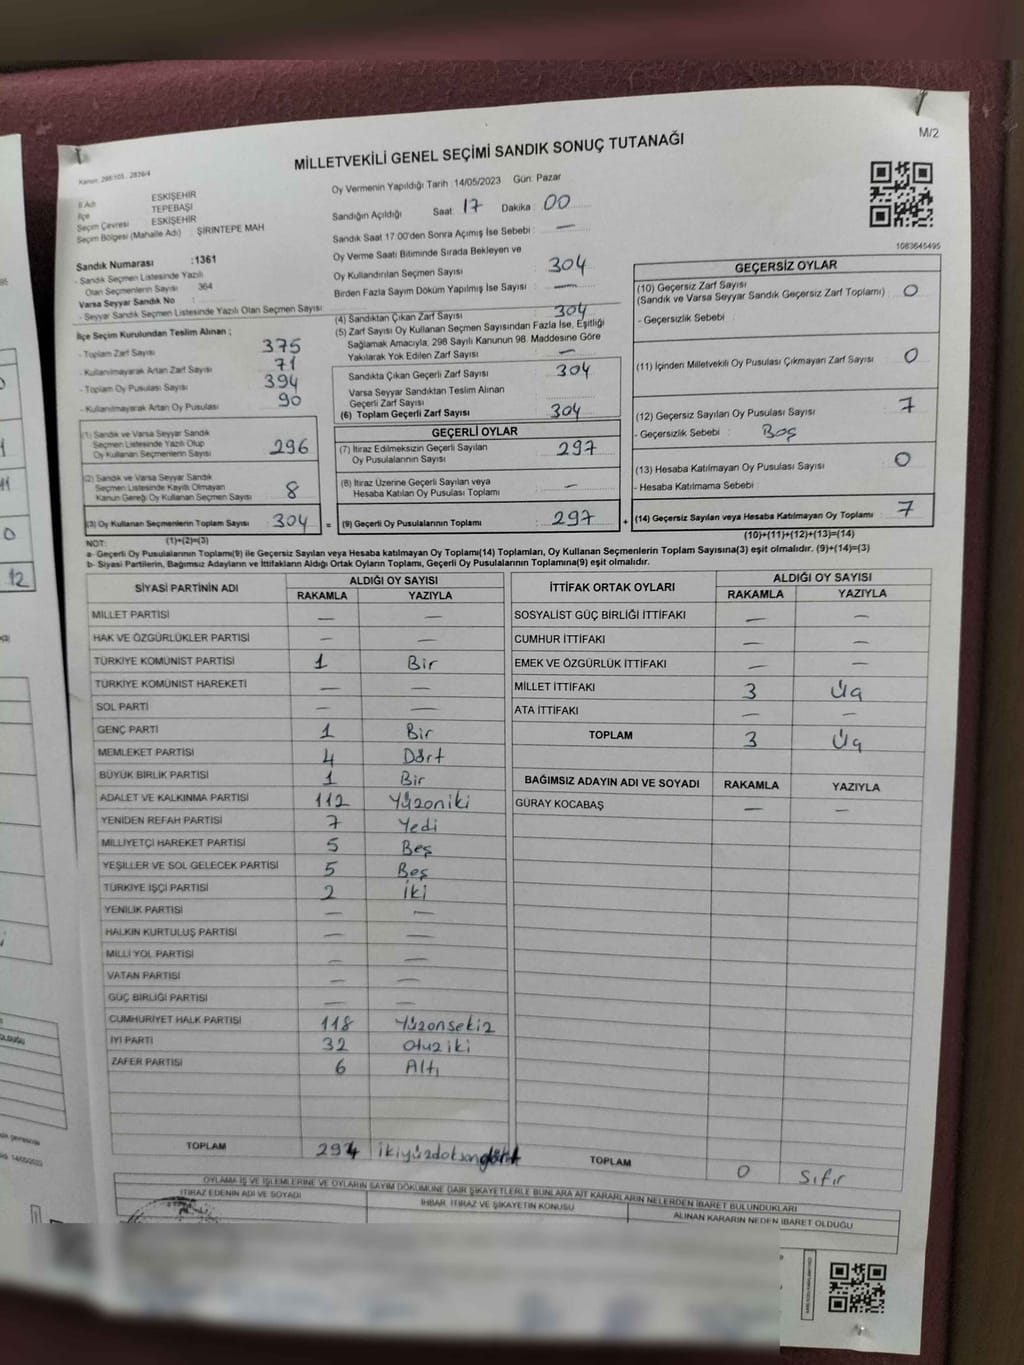 M/2
MİLLETVEKİLİ GENEL SEÇİMİ SANDIK SONUÇ TUTANAĞI
İl Adı ESKİŞEHİR
İlçe TEPEBAŞI
Seçim Çevresi ESKİŞEHİR
Seçim Bölgesi (Mahalle Adı) : ŞİRİNTEPE MAH
Sandık Numarası :1361
- Sandık Seçmen Listesinde Yazılı
Olan Seçmenlerin Sayısı 364
Varsa Seyyar Sandık No :
- Seyyar Sandık Seçmen Listesinde Yazılı Olan Seçmen Sayısı
İlçe Seçim Kurulundan Teslim Alınan ;
- Toplam Zarf Sayısı 375
- Kullanılmayarak Artan Zarf Sayısı 71
- Toplam Oy Pusulası Sayısı 394
- Kullanılmayarak Artan Oy Pusulası 90
(1) Sandık ve Varsa Seyyar Sandık
Seçmen Listesinde Yazılı Olup
Oy Kullanan Seçmenlerin Sayısı 296
(2) Sandık ve Varsa Seyyar Sandık
Seçmen Listesinde Kayıtlı Olmayan
Kanun Gereği Oy Kullanan Seçmen Sayısı 8
(3) Oy Kullanan Seçmenlerin Toplam Sayısı : 304 =
(1)+(2)=(3)
Oy Vermenin Yapıldığı Tarih : 14/05/2023 Gün: Pazar
Sandığın Açıldığı Saat: 17 Dakika : 00
Sandık Saat 17:00'den Sonra Açımış İse Sebebi : —
Oy Verme Saati Bitiminde Sırada Bekleyen ve
Oy Kullandırılan Seçmen Sayısı 304
Birden Fazla Sayım Döküm Yapılmış İse Sayısı : —
(4) Sandıktan Çıkan Zarf Sayısı 304
(5) Zarf Sayısı Oy Kullanan Seçmen Sayısından Fazla İse, Eşitliği
Sağlamak Amacıyla, 298 Sayılı Kanunun 98. Maddesine Göre
Yakılarak Yok Edilen Zarf Sayısı —
Sandıkta Çıkan Geçerli Zarf Sayısı 304
Varsa Seyyar Sandıktan Teslim Alınan
Geçerli Zarf Sayısı
(6) Toplam Geçerli Zarf Sayısı 304
GEÇERLİ OYLAR
(7) İtiraz Edilmeksizin Geçerli Sayılan
Oy Pusulalarının Sayısı 297
(8) İtiraz Üzerine Geçerli Sayılan veya
Hesaba Katılan Oy Pusulası Toplamı —
(9) Geçerli Oy Pusulalarının Toplamı : 297 +
1083645495
GEÇERSİZ OYLAR
(10) Geçersiz Zarf Sayısı
(Sandık ve Varsa Seyyar Sandık Geçersiz Zarf Toplamı) : 0
- Geçersizlik Sebebi
(11) İçinden Milletvekili Oy Pusulası Çıkmayan Zarf Sayısı 0
(12) Geçersiz Sayılan Oy Pusulası Sayısı : 7
- Geçersizlik Sebebi : Boş
(13) Hesaba Katılmayan Oy Pusulası Sayısı : 0
- Hesaba Katılmama Sebebi :
(14) Geçersiz Sayılan veya Hesaba Katılmayan Oy Toplamı : 7
(10)+(11)+(12)+(13)=(14)
NOT:
a- Geçerli Oy Pusulalarının Toplamı(9) ile Geçersiz Sayılan veya Hesaba katılmayan Oy Toplamı(14) Toplamları, Oy Kullanan Seçmenlerin Toplam Sayısına(3) eşit olmalıdır. (9)+(14)=(3)
b- Siyasi Partilerin, Bağımsız Adayların ve İttifakların Aldığı Ortak Oyların Toplamı, Geçerli Oy Pusulalarının Toplamına(9) eşit olmalıdır.
SİYASİ PARTİNİN ADI ALDIĞI OY SAYISI
RAKAMLA YAZIYLA
MİLLET PARTİSİ — —
HAK VE ÖZGÜRLÜKLER PARTİSİ — —
TÜRKİYE KOMÜNİST PARTİSİ 1 Bir
TÜRKİYE KOMÜNİST HAREKETİ — —
SOL PARTİ — —
GENÇ PARTİ 1 Bir
MEMLEKET PARTİSİ 4 Dört
BÜYÜK BİRLİK PARTİSİ 1 Bir
ADALET VE KALKINMA PARTİSİ 112 Yüzoniki
YENİDEN REFAH PARTİSİ 7 Yedi
MİLLİYETÇİ HAREKET PARTİSİ 5 Beş
YEŞİLLER VE SOL GELECEK PARTİSİ 5 Beş
TÜRKİYE İŞÇİ PARTİSİ 2 İki
YENİLİK PARTİSİ — —
HALKIN KURTULUŞ PARTİSİ — —
MİLLİ YOL PARTİSİ — —
VATAN PARTİSİ — —
GÜÇ BİRLİĞİ PARTİSİ — —
CUMHURİYET HALK PARTİSİ 118 Yüzonsekiz
İYİ PARTİ 32 Otuziki
ZAFER PARTİSİ 6 Altı
TOPLAM 294 ikiyüzdoksandört
İTTİFAK ORTAK OYLARI ALDIĞI OY SAYISI
RAKAMLA YAZIYLA
SOSYALİST GÜÇ BİRLİĞİ İTTİFAKI — —
CUMHUR İTTİFAKI — —
EMEK VE ÖZGÜRLÜK İTTİFAKI — —
MİLLET İTTİFAKI 3 Üç
ATA İTTİFAKI — —
TOPLAM 3 Üç
BAĞIMSIZ ADAYIN ADI VE SOYADI RAKAMLA YAZIYLA
GÜRAY KOCABAŞ — —
TOPLAM 0 Sıfır
OYLAMA İŞ VE İŞLEMLERİNE VE OYLARIN SAYIM DÖKÜMÜNE DAİR ŞİKAYETLERLE BUNLARA AİT KARARLARIN NELERDEN İBARET BULUNDUKLARI
İTİRAZ EDENİN ADI VE SOYADI İHBAR, İTİRAZ VE ŞİKAYETİN KONUSU ALINAN KARARIN NEDEN İBARET OLDUĞU
12